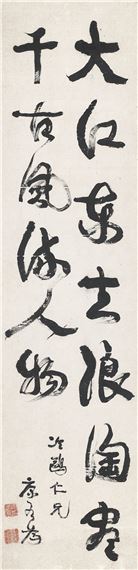 大江東去浪淘盡
千古風流人物
冶鷗仁兄
康有為